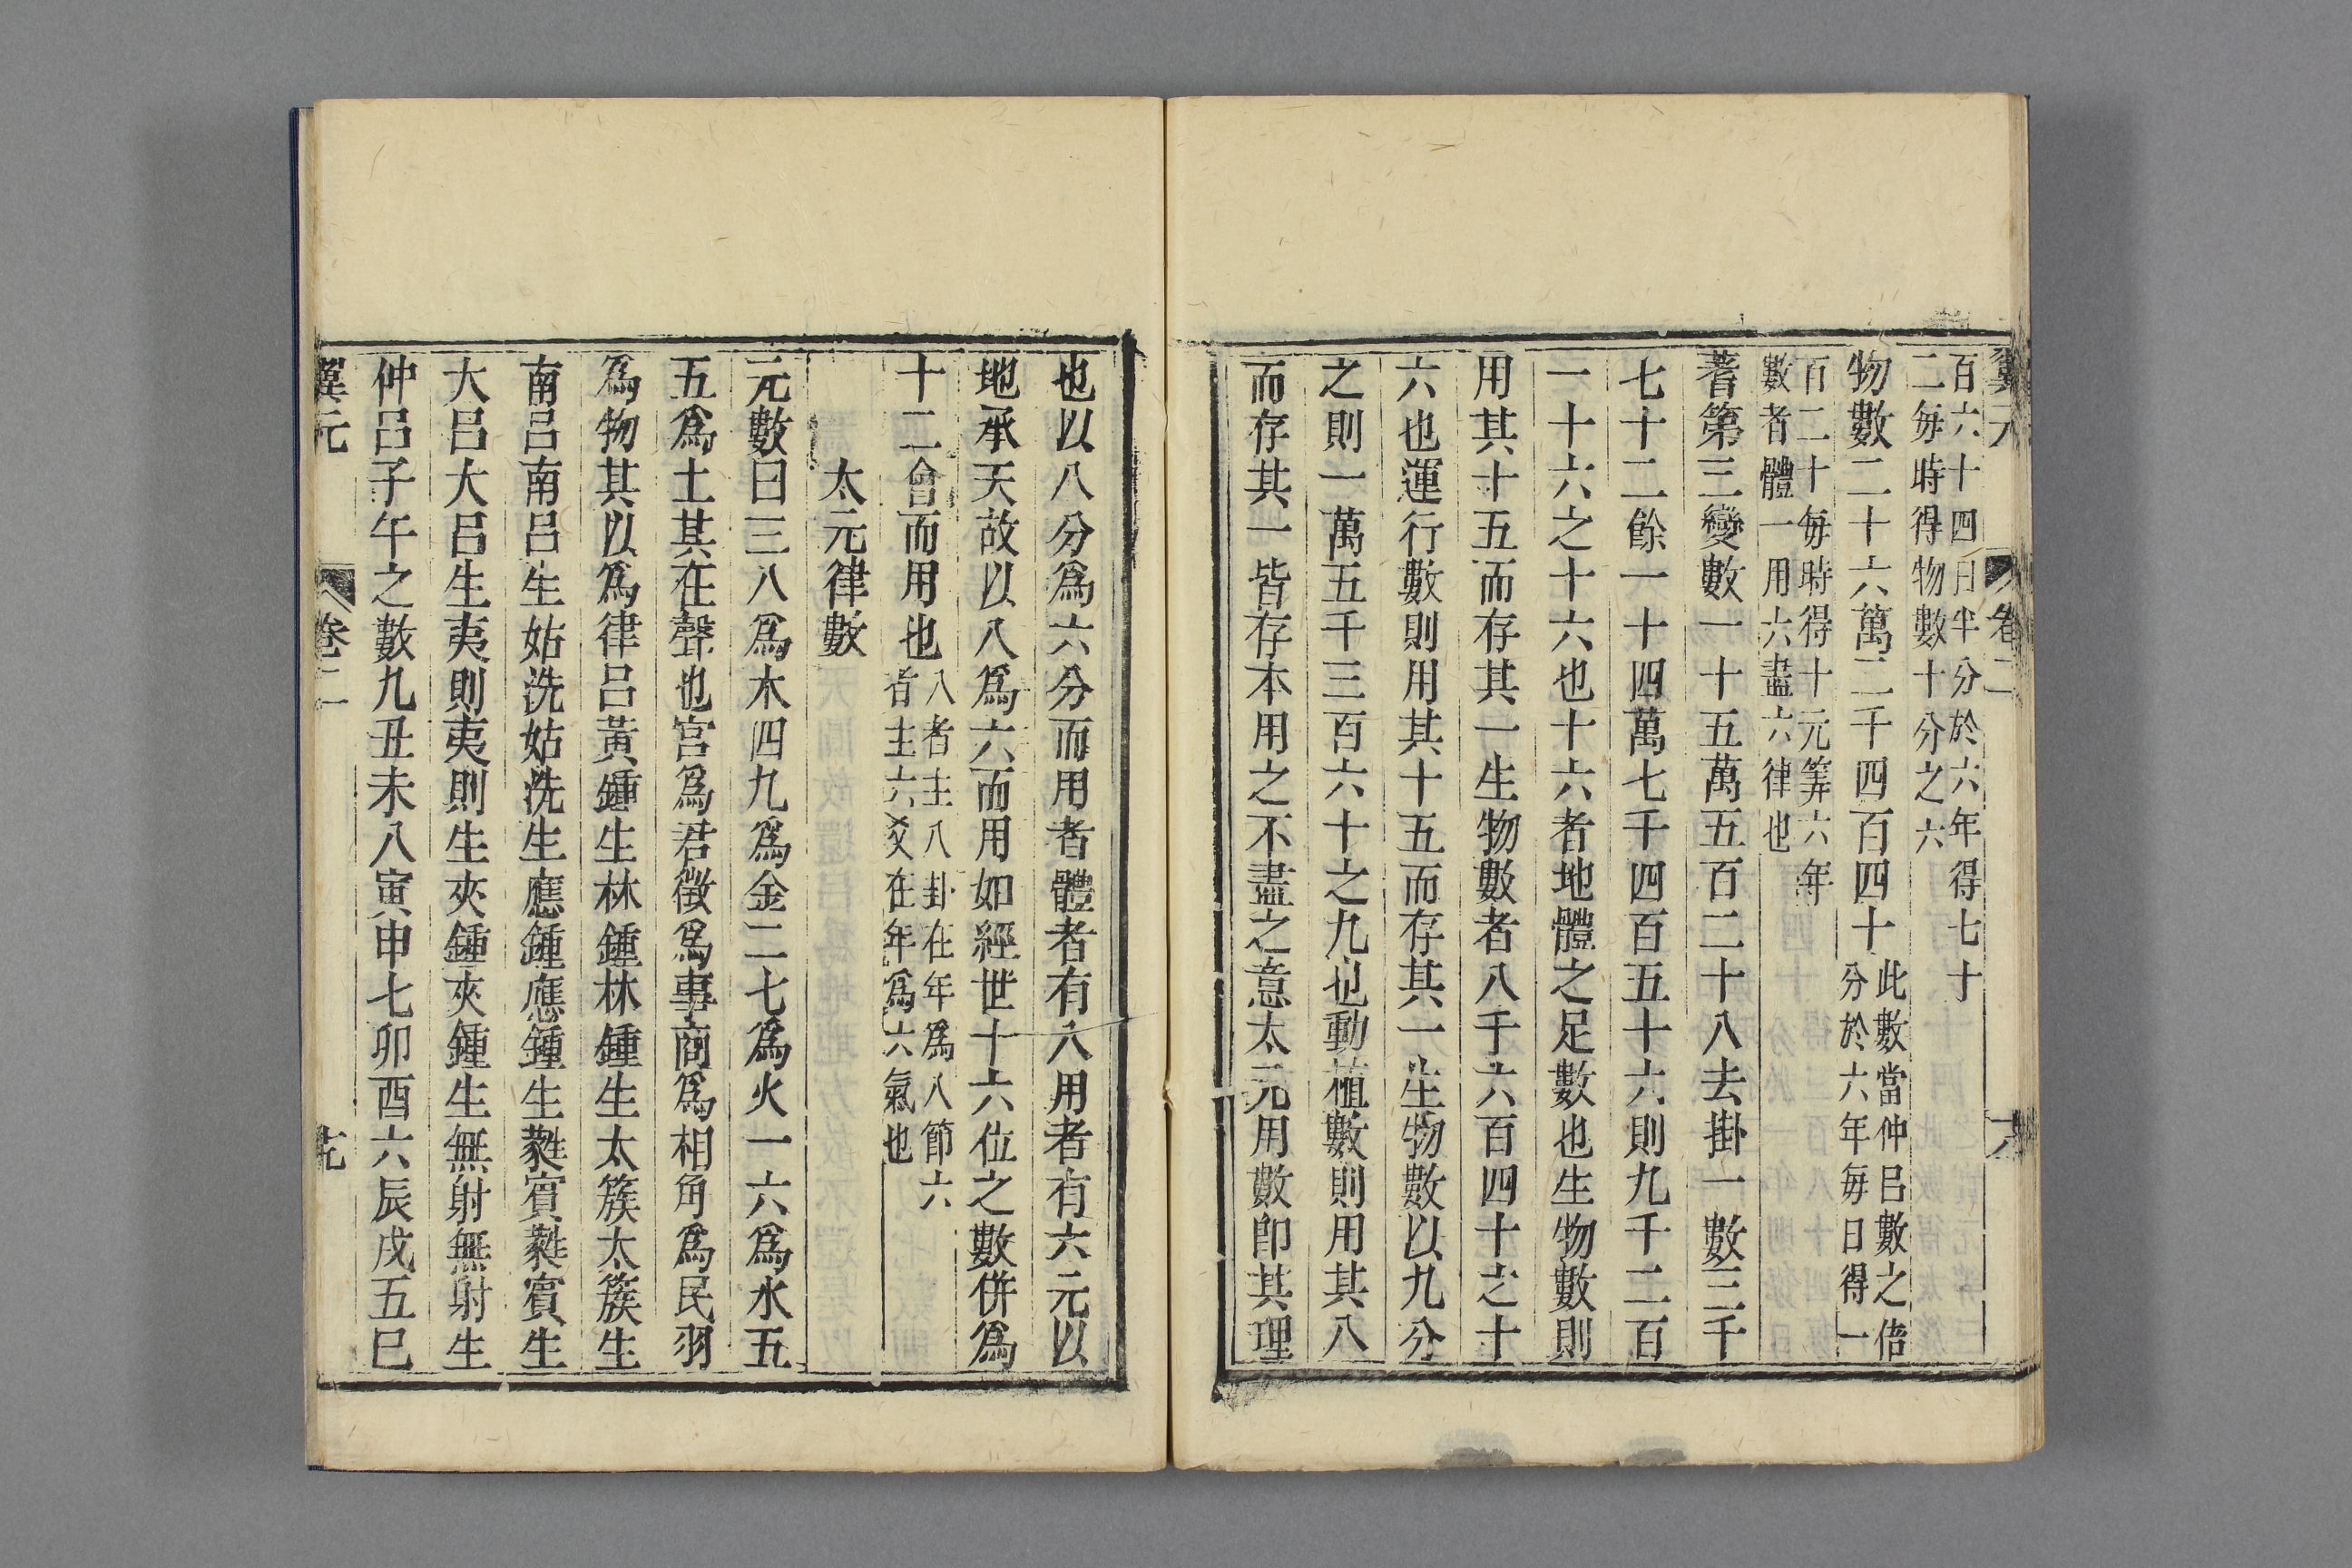 翼元 卷二
百六十四日半分於六年得七十
二毎時得物數十分之六
物數二十六萬二千四百四十此數當仲呂數之倍
分於六年毎日得一
百二十毎時得十元筭六年
數者體一用六盡六律也
蓍第三變數一十五萬五百二十八去掛一數三千
七十二餘一十四萬七千四百五十六則九千二百
一十六之十六也十六者地體之足數也生物數則
用其十五而存其一生物數者八千六百四十之十
六也運行數則用其十五而存其一生物數以九分
之則一萬五千三百六十之九也動植數則用其八
而存其一皆存本用之不盡之意太元用數卽其理
也以八分爲六分而用者體者有八用者有六元以
地承天故以八爲六而用如經世十六位之數併爲
十二會而用也八者主八卦在年爲八節六
者主六爻在年爲六氣也
太元律數
元數曰三八爲木四九爲金二七爲火一六爲水五
五爲土其在聲也宮爲君徵爲事商爲相角爲民羽
爲物其以爲律呂黃鍾生林鍾林鍾生太簇太簇生
南呂南呂生姑洗姑洗生應鍾應鍾生蕤賓蕤賓生
大呂大呂生夷則夷則生夾鍾夾鍾生無射無射生
仲呂子午之數九丑未八寅申七卯酉六辰戌五巳
翼元 卷二